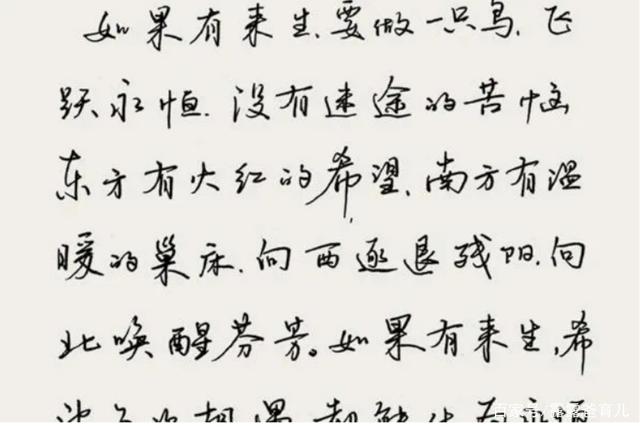 如果有来生.要做一只鸟.飞
跃永恒.没有迷途的苦恼
东方有火红的希望.南方有温
暖的巢床.向西逐退残阳.向
北唤醒芬芳。如果有来生,希
望每次相遇,都能化为永恒
百家号/
爸育儿